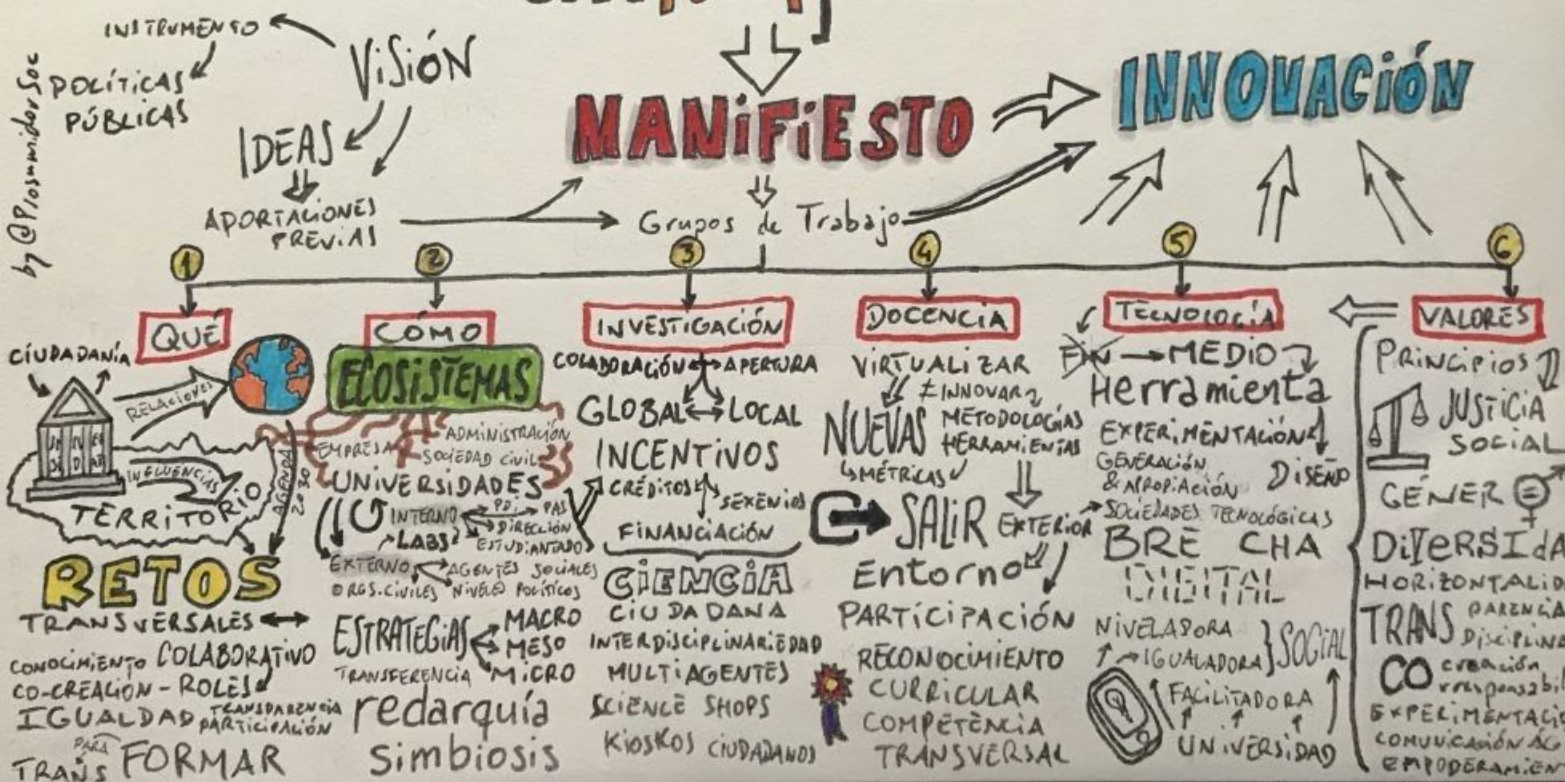 INSTRUMENTO
VISIÓN
POLÍTICAS
PÚBLICAS
by @ProsumidorSoc
IDEAS
APORTACIONES
PREVIAS
MANIFIESTO
INNOVACIÓN
Grupos de Trabajo
1
2
3
4
5
6
QUÉ
CIUDADANÍA
RELACIONES
INFLUENCIAS
TERRITORIO
AGENDA
2030
RETOS
TRANSVERSALES
CONOCIMIENTO COLABORATIVO
CO-CREACIÓN - ROLES
IGUALDAD TRANSPARENCIA
PARTICIPACIÓN
PARA
TRANS FORMAR
CÓMO
ECOSISTEMAS
EMPRESA ADMINISTRACIÓN
SOCIEDAD CIVIL
UNIVERSIDADES
INTERNO PDI PAS
DIRECCIÓN
LABS ESTUDIANTADO
EXTERNO AGENTES SOCIALES
ORGS. CIVILES NIVELES POLÍTICOS
ESTRATEGIAS MACRO
MESO
TRANSFERENCIA MICRO
redarquía
Simbiosis
INVESTIGACIÓN
COLABORACIÓN APERTURA
GLOBAL LOCAL
INCENTIVOS
CRÉDITOS SEXENIOS
FINANCIACIÓN
CIENCIA
CIUDADANA
INTERDISCIPLINARIEDAD
MULTIAGENTES
SCIENCE SHOPS
KIOSKOS CIUDADANOS
DOCENCIA
VIRTUALIZAR
≠ INNOVAR
NUEVAS METODOLOGÍAS
HERRAMIENTAS
MÉTRICAS
SALIR EXTERIOR
Entorno
PARTICIPACIÓN
RECONOCIMIENTO
CURRICULAR
COMPETÈNCIA
TRANSVERSAL
TECNOLOGÍA
FIN MEDIO
Herramienta
EXPERIMENTACIÓN
GENERACIÓN
& APROPIACIÓN DISEÑO
SOCIEDADES TECNOLÓGICAS
BRE CHA
DIGITAL
NIVELADORA
IGUALADORA } SOCIAL
FACILITADORA
UNIVERSIDAD
VALORES
PRINCIPIOS
JUSTICIA
SOCIAL
GÉNERO
DIVERSIDA
HORIZONTALID
TRANS PARENCIA
DISCIPLINA
CO creación
rresponsabil
EXPERIMENTACIÓ
COMUNICACIÓN AC
EMPODERAMIEN